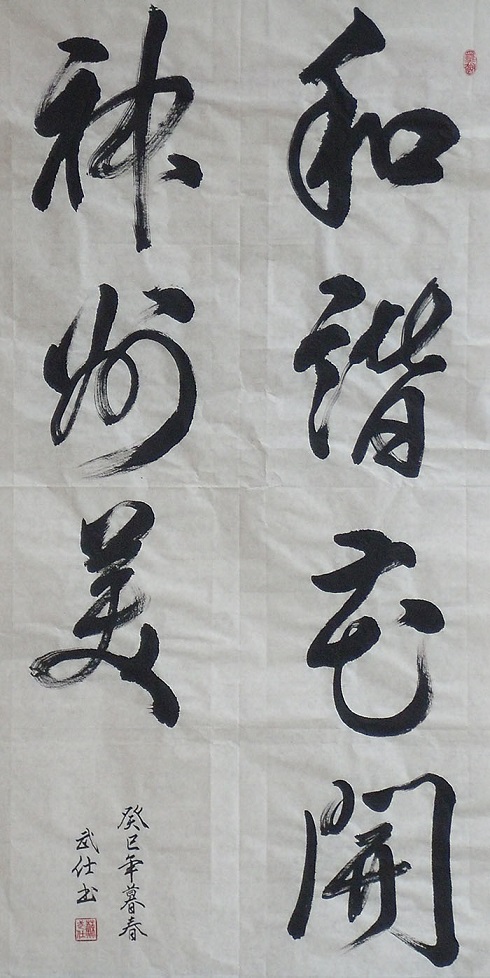 和諧花開
神州美
癸巳年暮春
武仕书